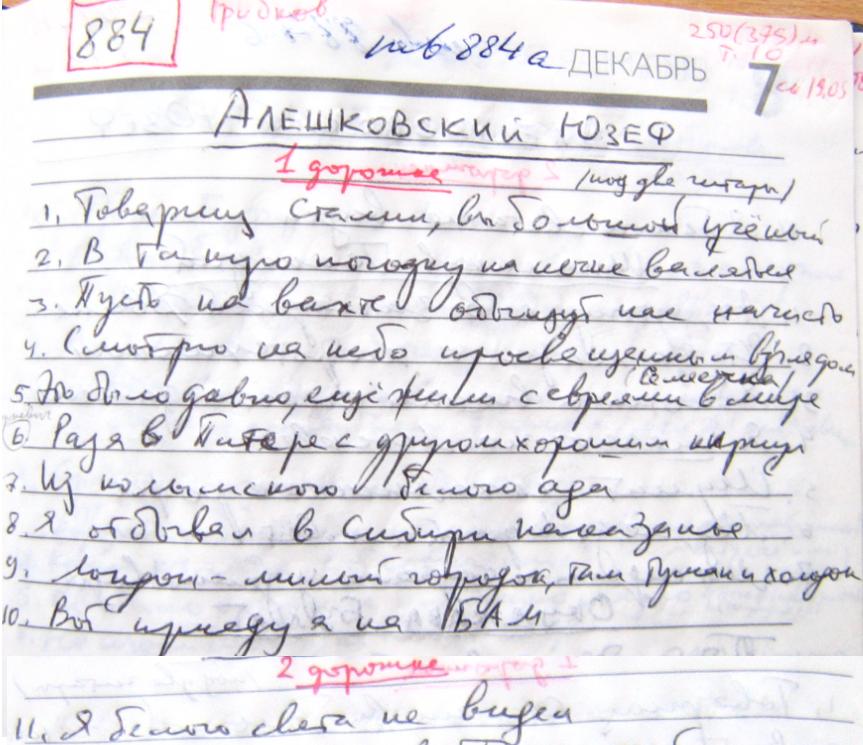 Грибков
884
пов 884а ДЕКАБРЬ 7
250(375)м
т. 10
см 19.05
АЛЕШКОВСКИЙ ЮЗЕФ
1 дорожке
/под две гитары/
1. Товарищ Сталин, вы большой учёный
2. В такую погодку на печке валяться
3. Пусть на вахте обыщут нас начисто
4. Смотрю на небо просвещенным взглядом
(Семеечка)
5. Это было давно, ещё жили с евреями в мире
6. Раз я в Питере с другом хорошим кирнул
7. Из колымского белого ада
8. Я отбывал в Сибири наказанье
9. Лондон - милый городок, там туман и холодок
10. Вот приеду я на БАМ
2 дорожке
11. Я белого света не видел